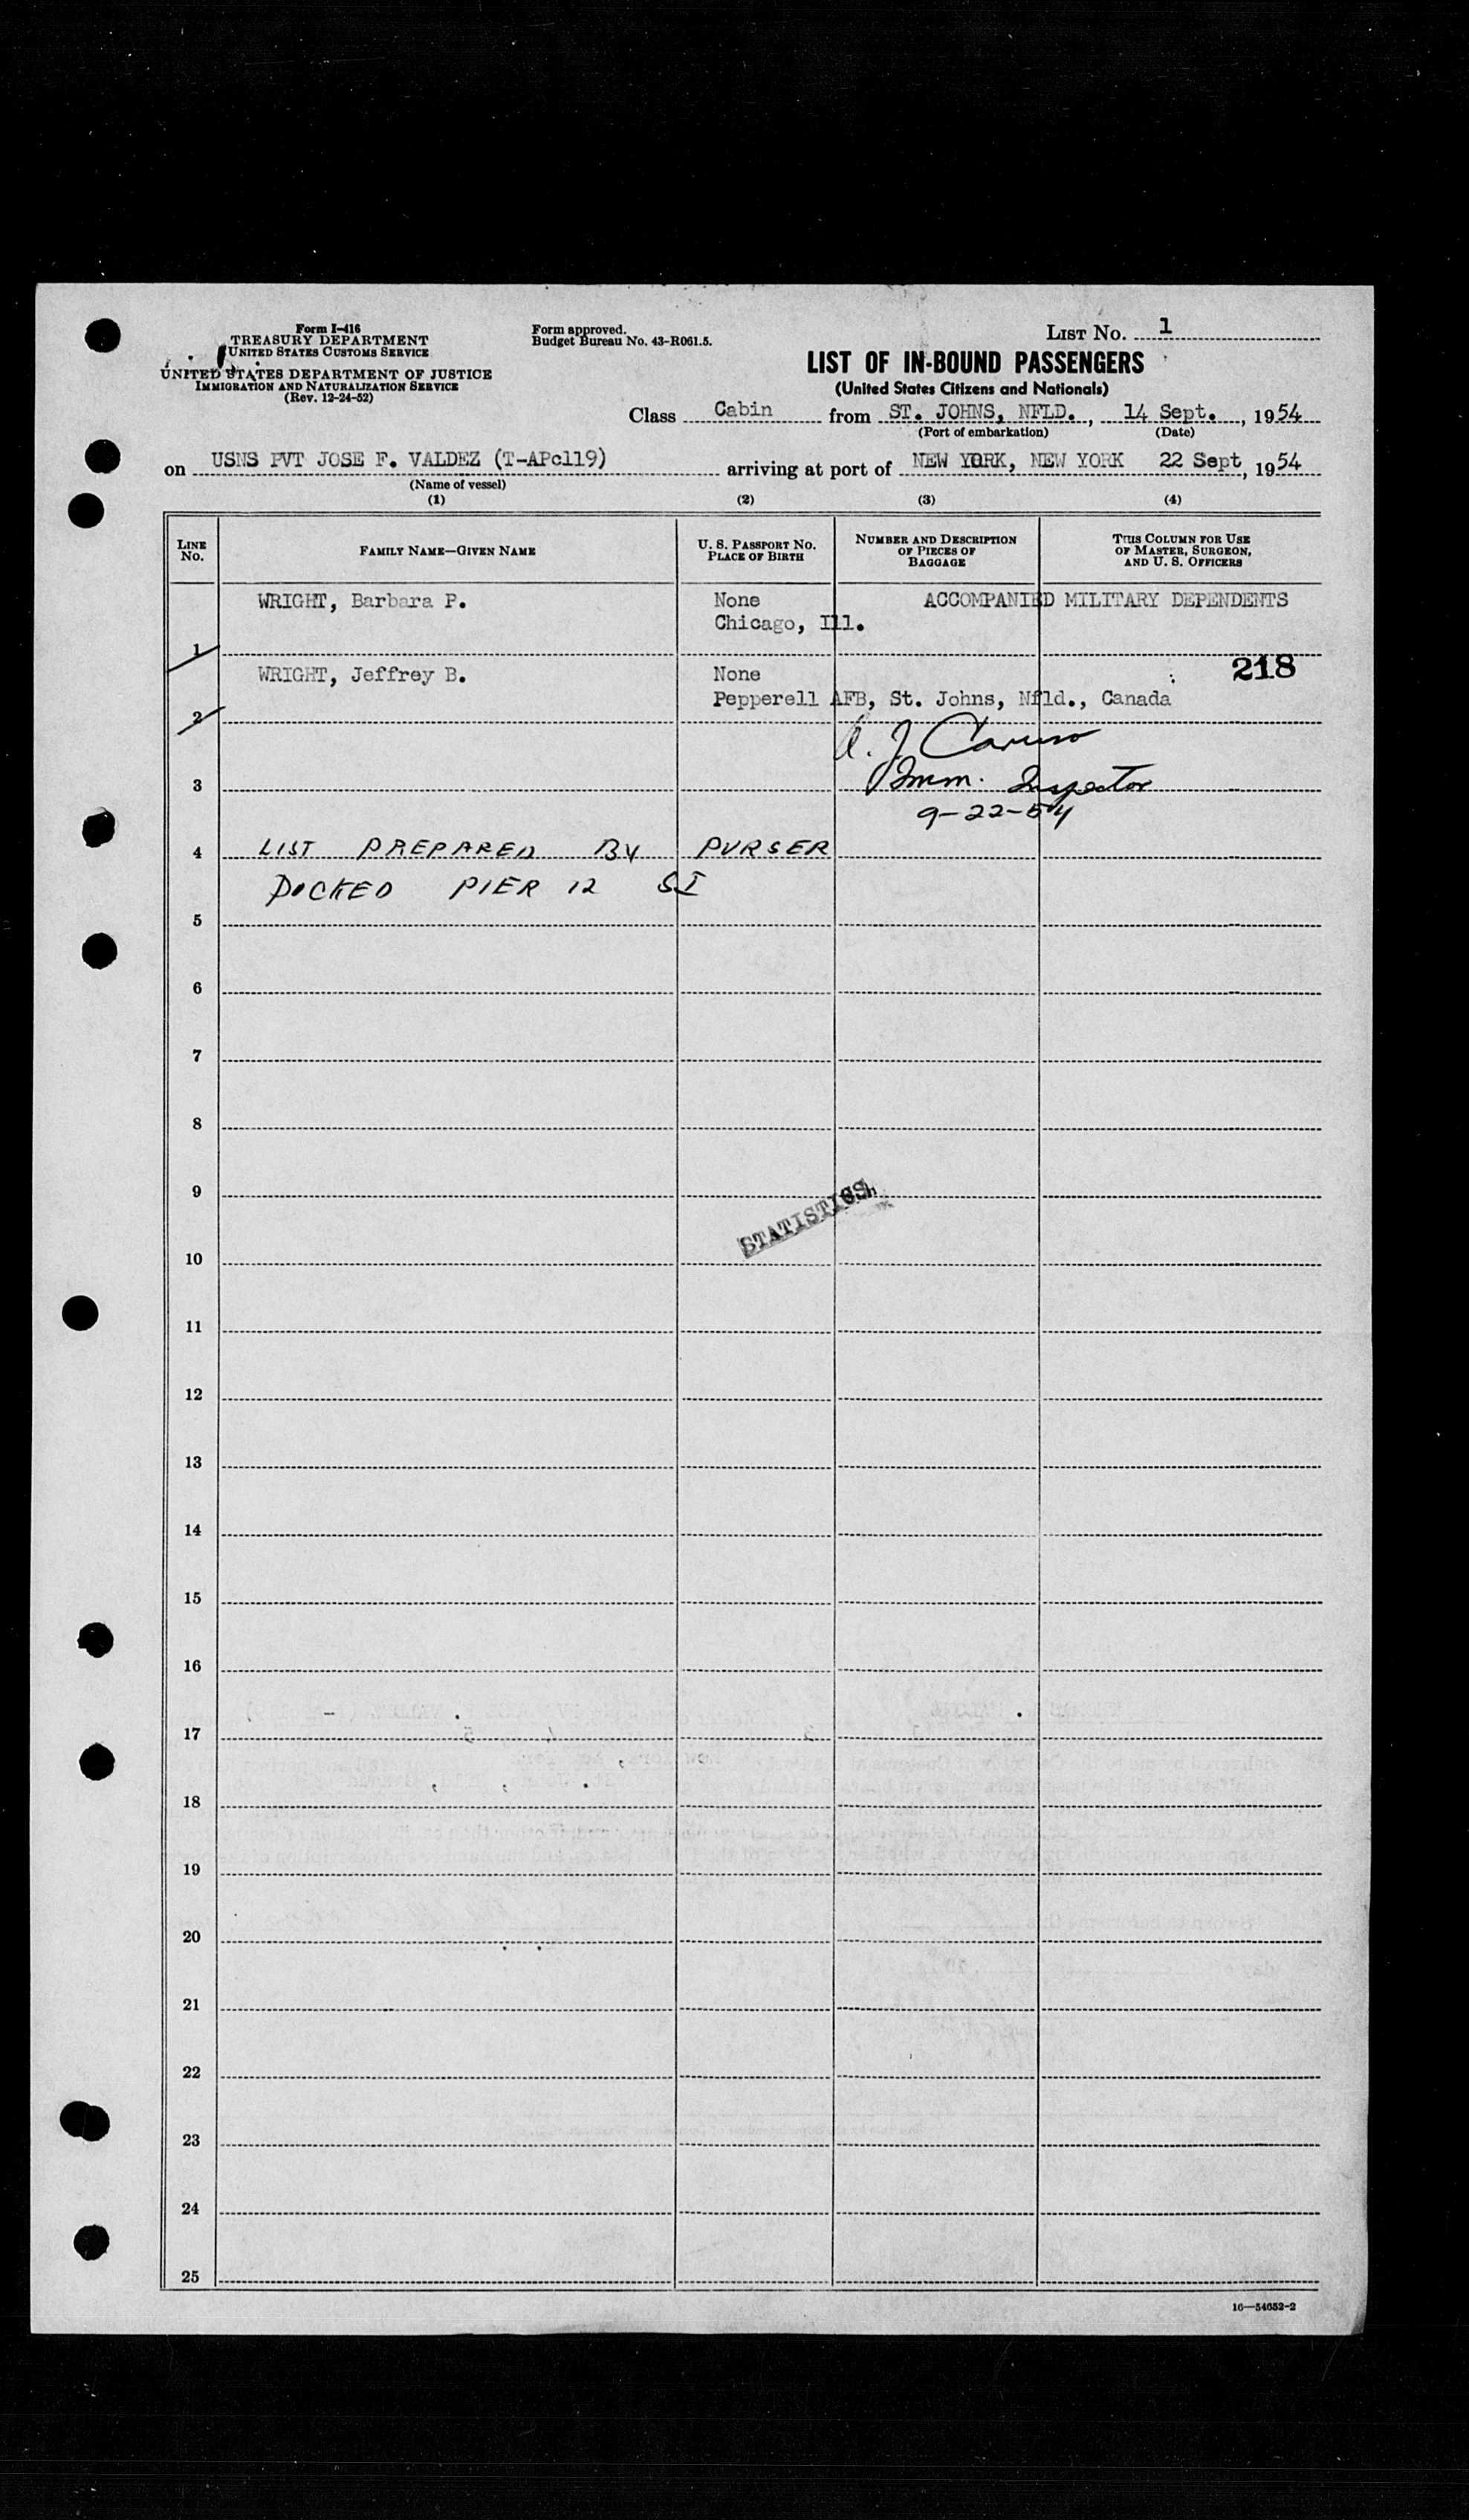 Form I-416
TREASURY DEPARTMENT
UNITED STATES CUSTOMS SERVICE
UNITED STATES DEPARTMENT OF JUSTICE
IMMIGRATION AND NATURALIZATION SERVICE
(Rev. 12-24-52)
Form approved.
Budget Bureau No. 43-R061.5.
LIST No. 1
LIST OF IN-BOUND PASSENGERS
(United States Citizens and Nationals)
Class Cabin from ST. JOHNS, NFLD., 14 Sept., 1954
(Port of embarkation) (Date)
on USNS PVT JOSE F. VALDEZ (T-APc119) arriving at port of NEW YORK, NEW YORK 22 Sept, 1954
(Name of vessel)
(1) (2) (3) (4)
LINE No. FAMILY NAME—GIVEN NAME U. S. PASSPORT No. PLACE OF BIRTH NUMBER AND DESCRIPTION OF PIECES OF BAGGAGE THIS COLUMN FOR USE OF MASTER, SURGEON, AND U. S. OFFICERS
WRIGHT, Barbara P. None ACCOMPANIED MILITARY DEPENDENTS
Chicago, Ill.
1
WRIGHT, Jeffrey B. None 218
Pepperell AFB, St. Johns, Nfld., Canada
2
A. J. Caruso
3 Imm. Inspector
9-22-54
4 LIST PREPARED BY PURSER
DOCKED PIER 12 SI
5
6
7
8
9
STATISTICS
10
11
12
13
14
15
16
17
18
19
20
21
22
23
24
25
16—54652-2